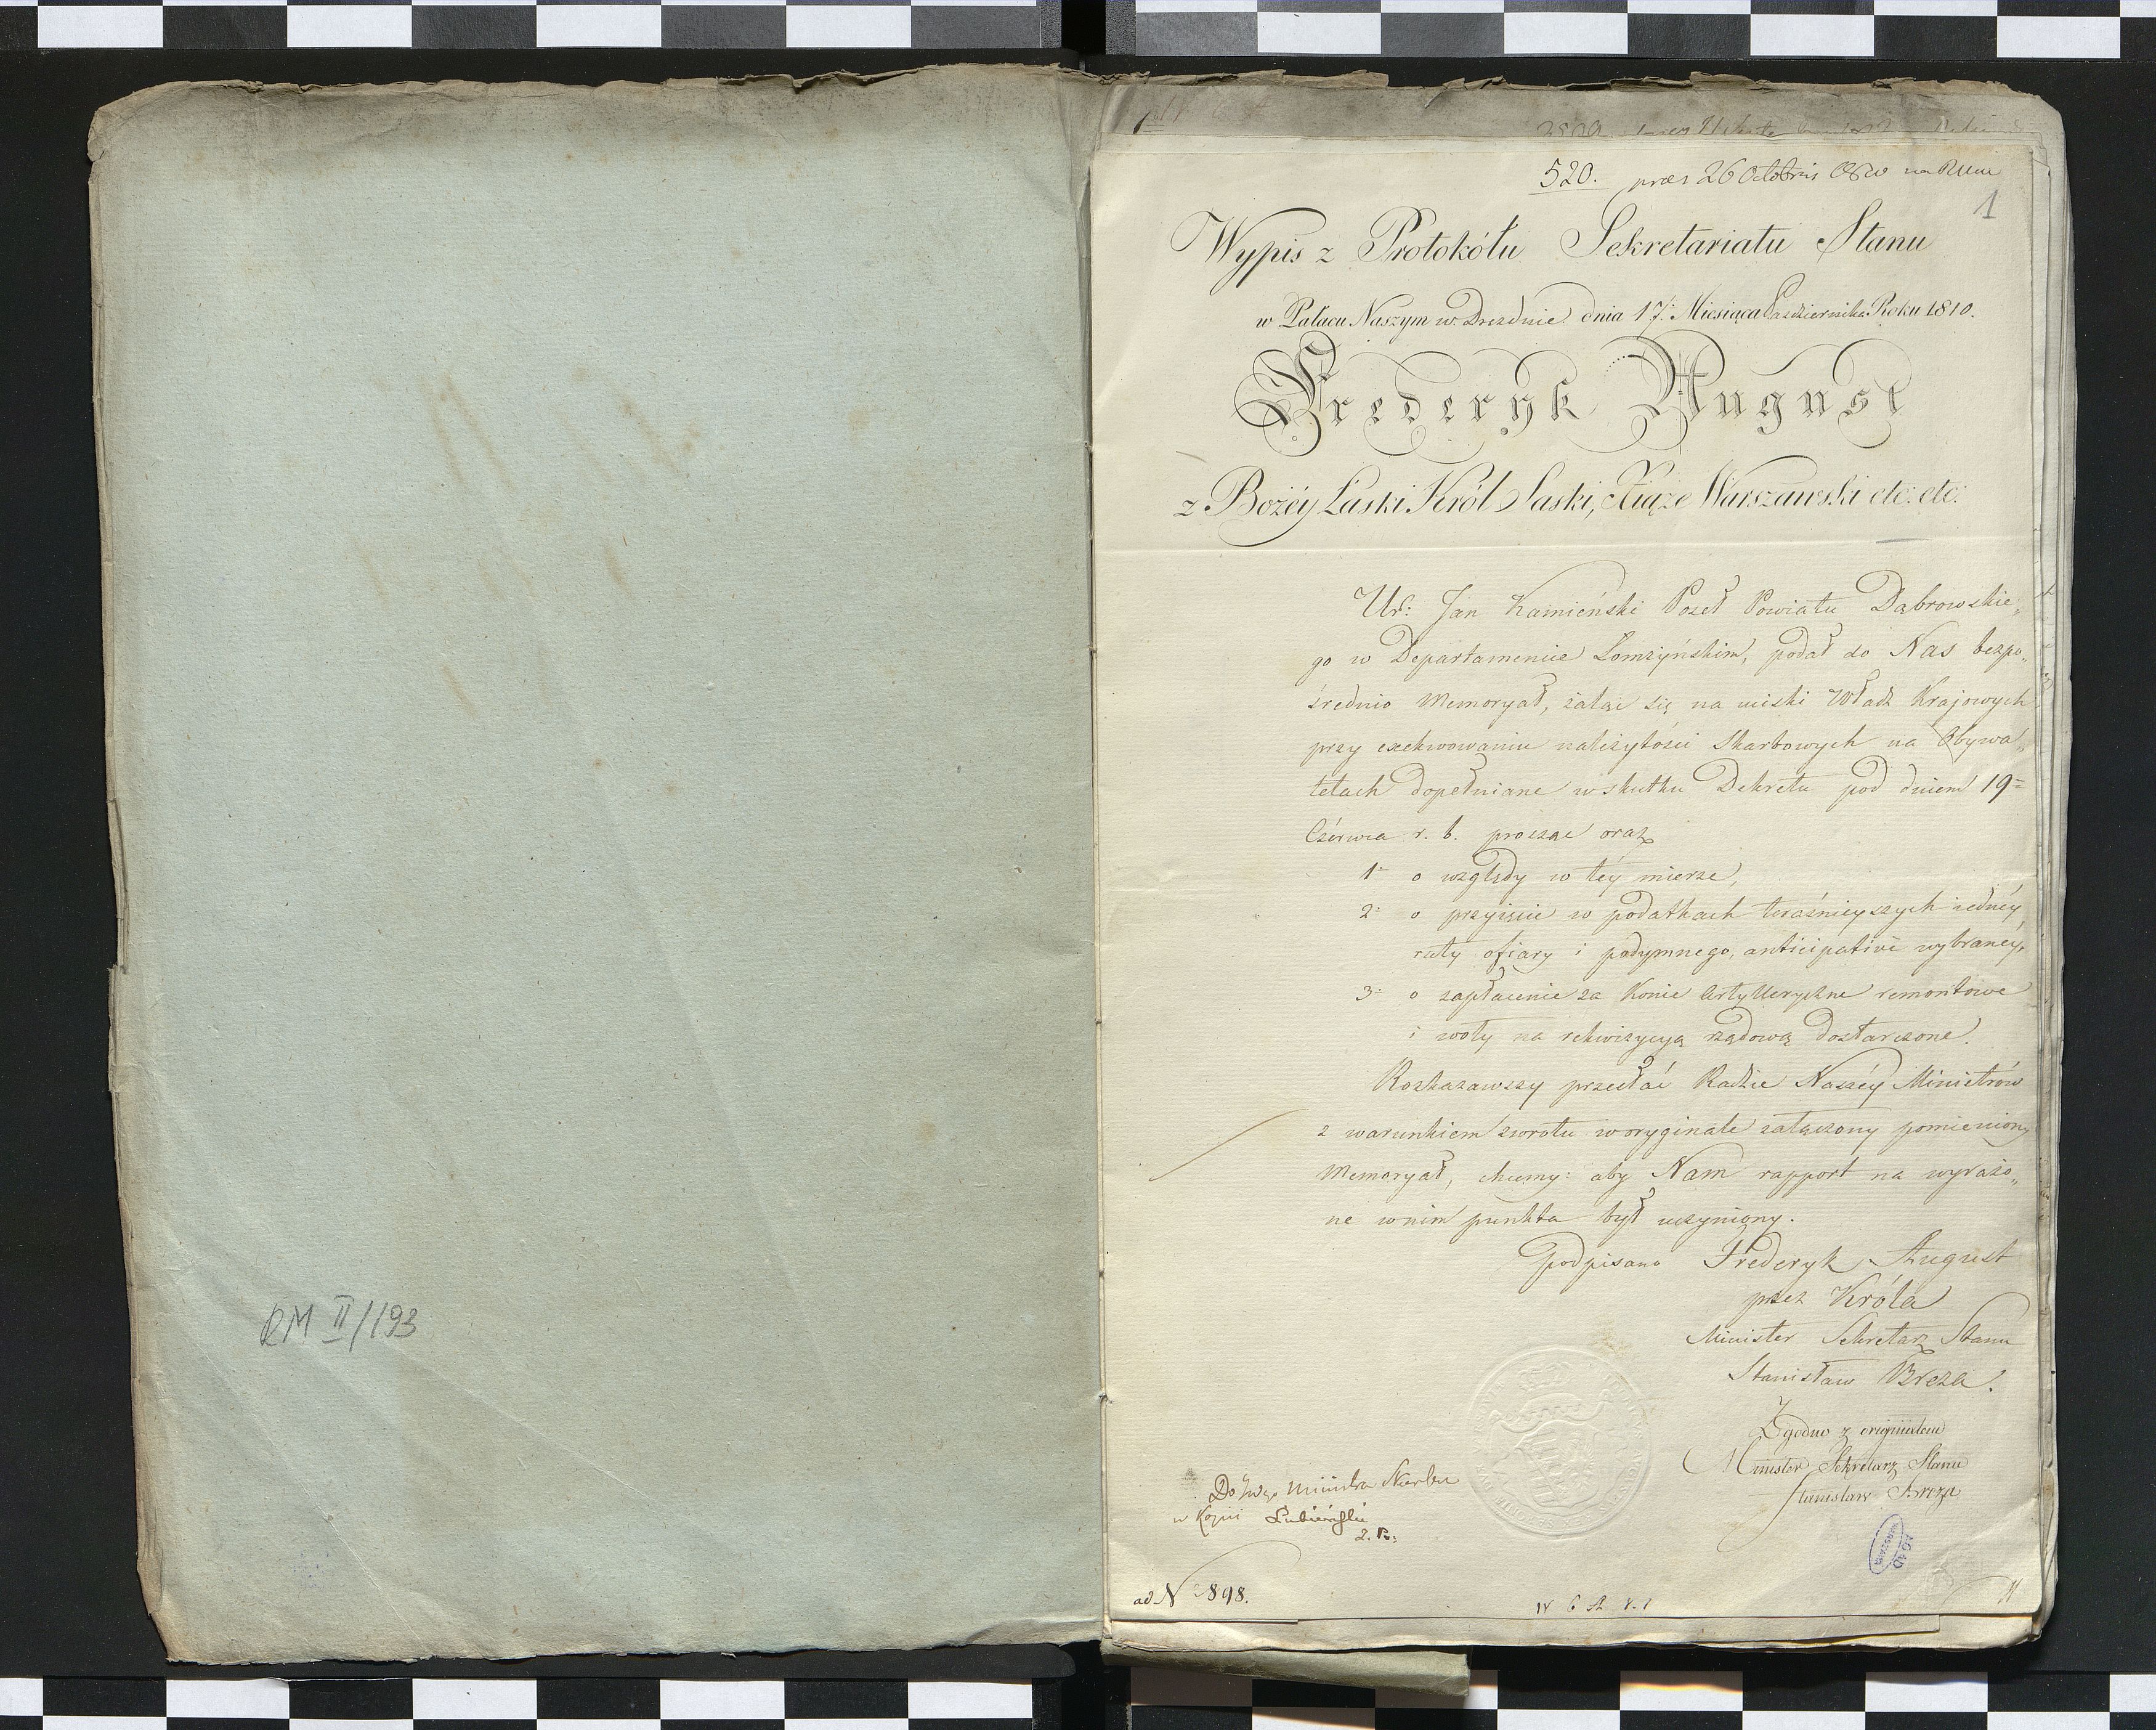 RM II/193
520. præs 26 Octobris
1
Wypis z Protokółu Sekretariatu Stanu
w Pałacu Naszym w Dreźdnie dnia 17. Miesiąca Października Roku 1810.
Frederyk August
z Bożéy Łaski Król Saski, Xiąże Warszawski etc: etc:
Ur: Jan Kamieński Poseł Powiatu Dąbrowskie„
go w Departamencie Łomżyńskim, podał do Nas bezpo„
średnio Memoryał, żaląc się na uciski Władz Krajowych
przy exekwowaniu należytości Skarbowych na Obywa„
telach dopełniane w skutku Dekretu pod dniem 19=
Czerwca r. b. prosząc oraz
1= o względy w téy mierze,
2= o przyięcie w podatkach teraźnieyszych iednéy
raty ofiary i podymnego, anticipative wybranéy,
3= o zapłacenie za Konie Artylleryczne remontowe
i woły na rekwizycyą rządową dostarczone.
Rozkazawszy przesłać Radzie Naszéy Ministrów
z warunkiem zwrotu w oryginale załączony pomieniony
Memoryał, chcemy: aby Nam rapport na wyrażo„
ne w nim punkta był uczyniony.
Podpisano Frederyk August
przez Króla
Minister Sekretarz Stanu
Stanisław Breza.
Zgodno z oryginałem
Minister Sekretarz Stanu
Stanisław Breza
Do Ministra Skarbu
w Kopii Łubieński
ad N 2898.